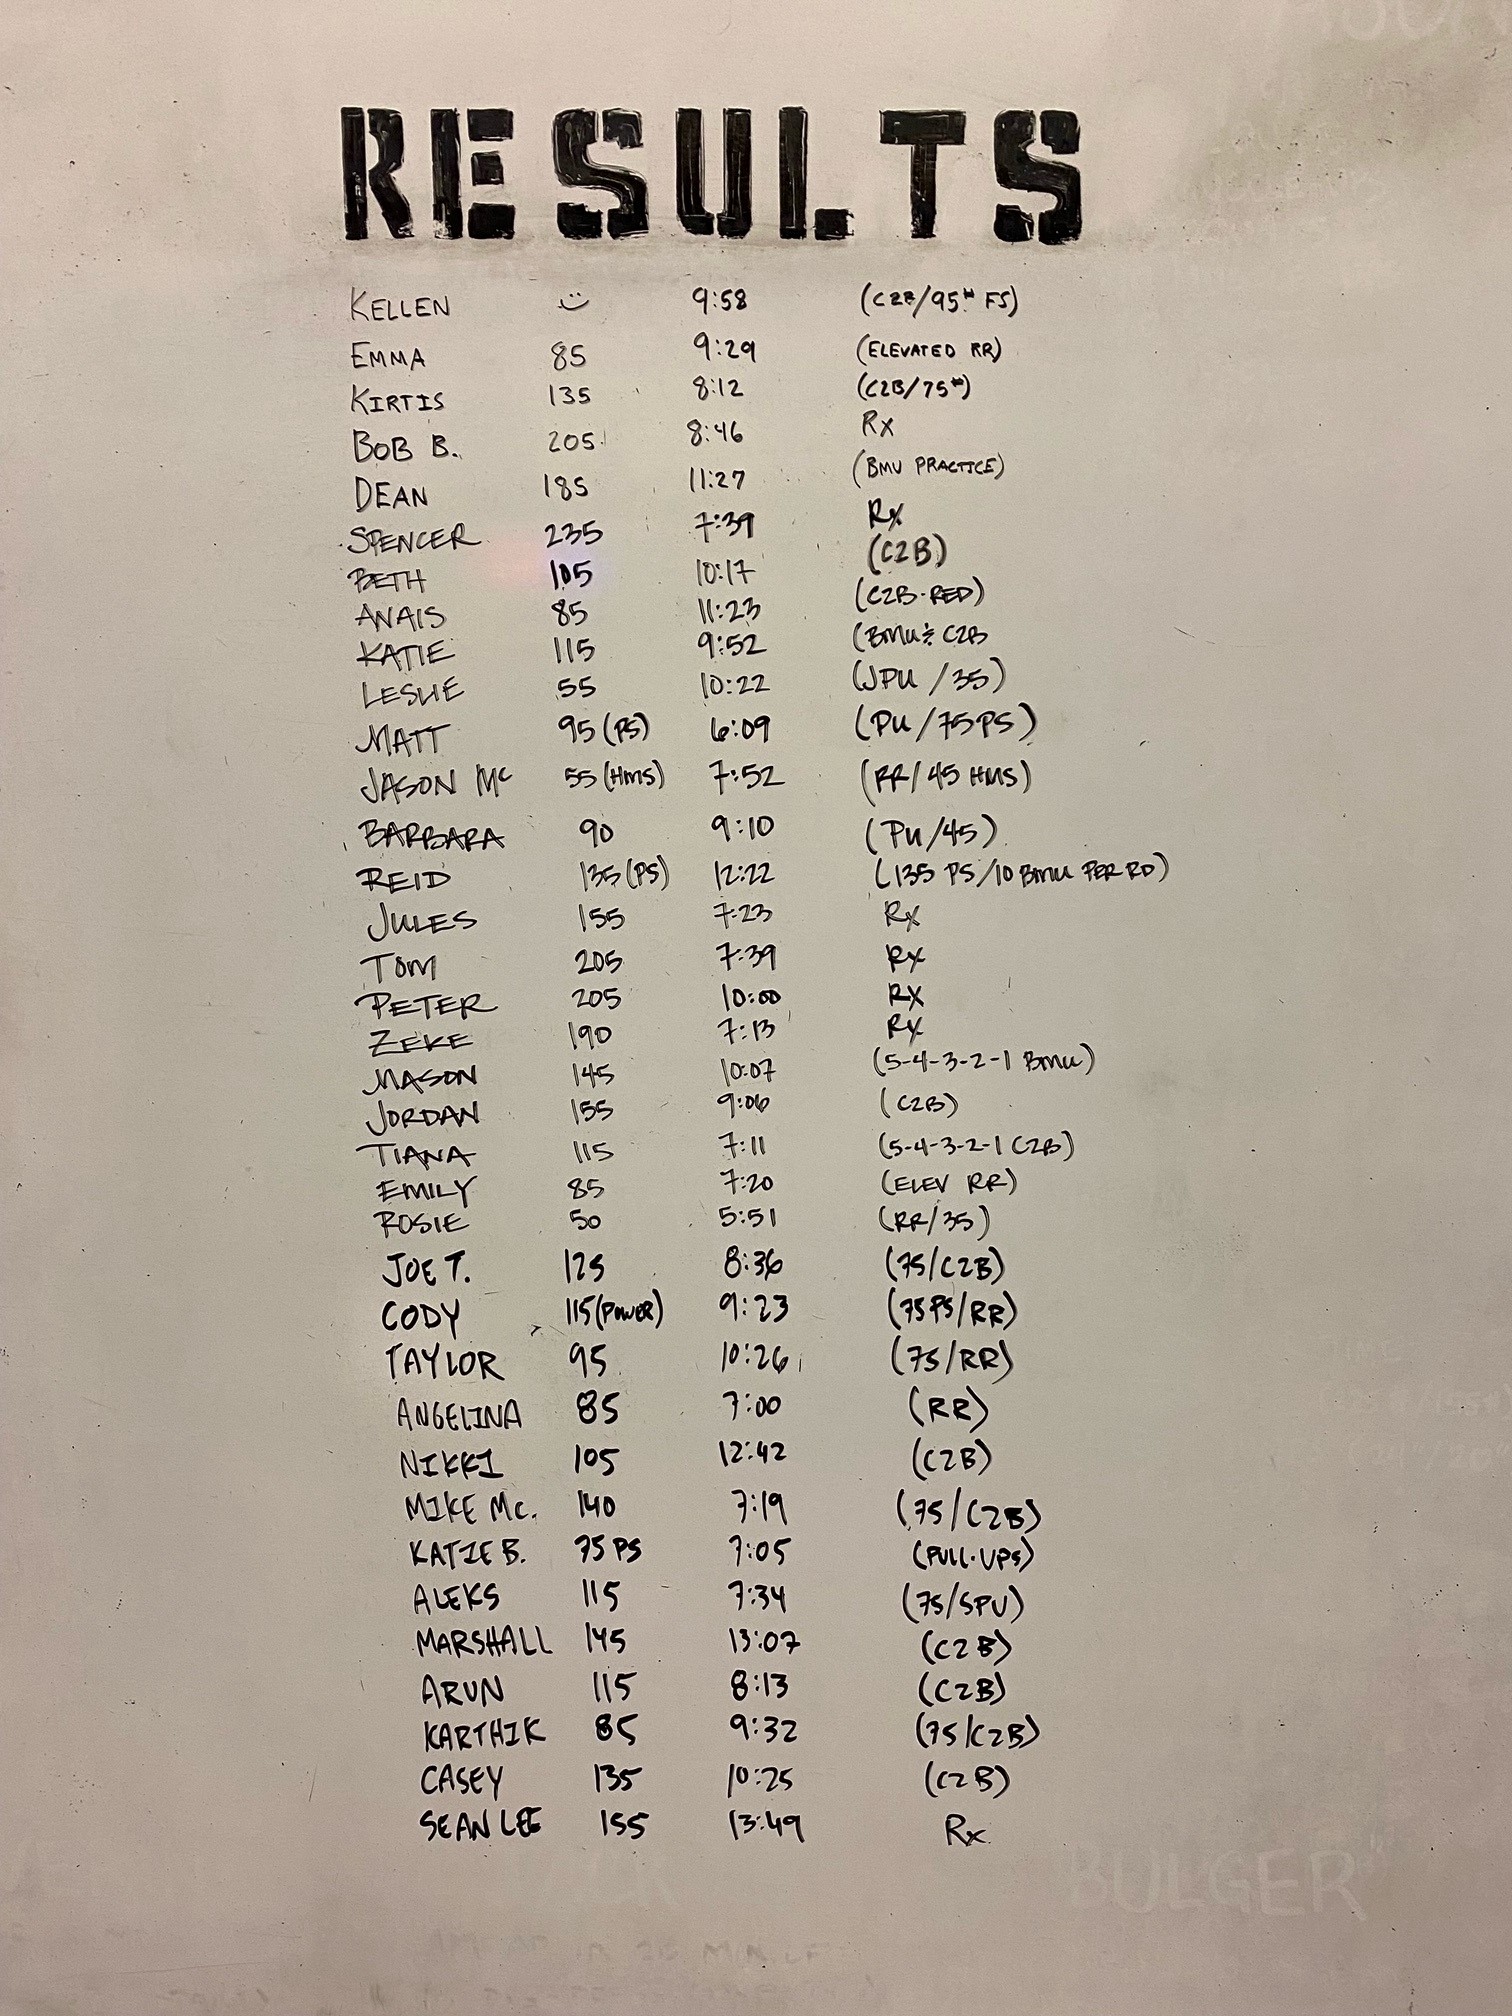 RESULTS
KELLEN 9:58 (C2B/95# FS)
EMMA 85 9:29 (ELEVATED RR)
KIRTIS 135 8:12 (C2B/75#)
BOB B. 205 8:46 Rx
DEAN 185 11:27 (BMU PRACTICE)
SPENCER 235 7:39 Rx
BETH 105 10:17 (C2B)
ANAIS 85 11:23 (C2B-RED)
KATIE 115 9:52 (BMU & C2B
LESLIE 55 10:22 (JPU /35)
MATT 95 (PS) 6:09 (PU/75PS)
JASON Mc 55 (HMS) 7:52 (RR/45 HMS)
BARBARA 90 9:10 (PU/45)
REID 135 (PS) 12:22 (135 PS/10 BMU PER RD)
JULES 155 7:23 Rx
TOM 205 7:39 Rx
PETER 205 10:00 Rx
ZEKE 190 7:13 Rx
MASON 145 10:07 (5-4-3-2-1 BMU)
JORDAN 155 9:06 (C2B)
TIANA 115 7:11 (5-4-3-2-1 C2B)
EMILY 85 7:20 (ELEV RR)
ROSIE 50 5:51 (RR/35)
JOE T. 125 8:36 (75/C2B)
CODY 115 (POWER) 9:23 (75PS/RR)
TAYLOR 95 10:26 (75/RR)
ANGELINA 85 7:00 (RR)
NIKKI 105 12:42 (C2B)
MIKE Mc. 140 7:19 (75/C2B)
KATIE B. 75 PS 7:05 (PULL-UPS)
ALEKS 115 7:34 (75/SPU)
MARSHALL 145 13:07 (C2B)
ARUN 115 8:13 (C2B)
KARTHIK 85 9:32 (75/C2B)
CASEY 135 10:25 (C2B)
SEAN LEE 155 13:49 Rx
BULGER"